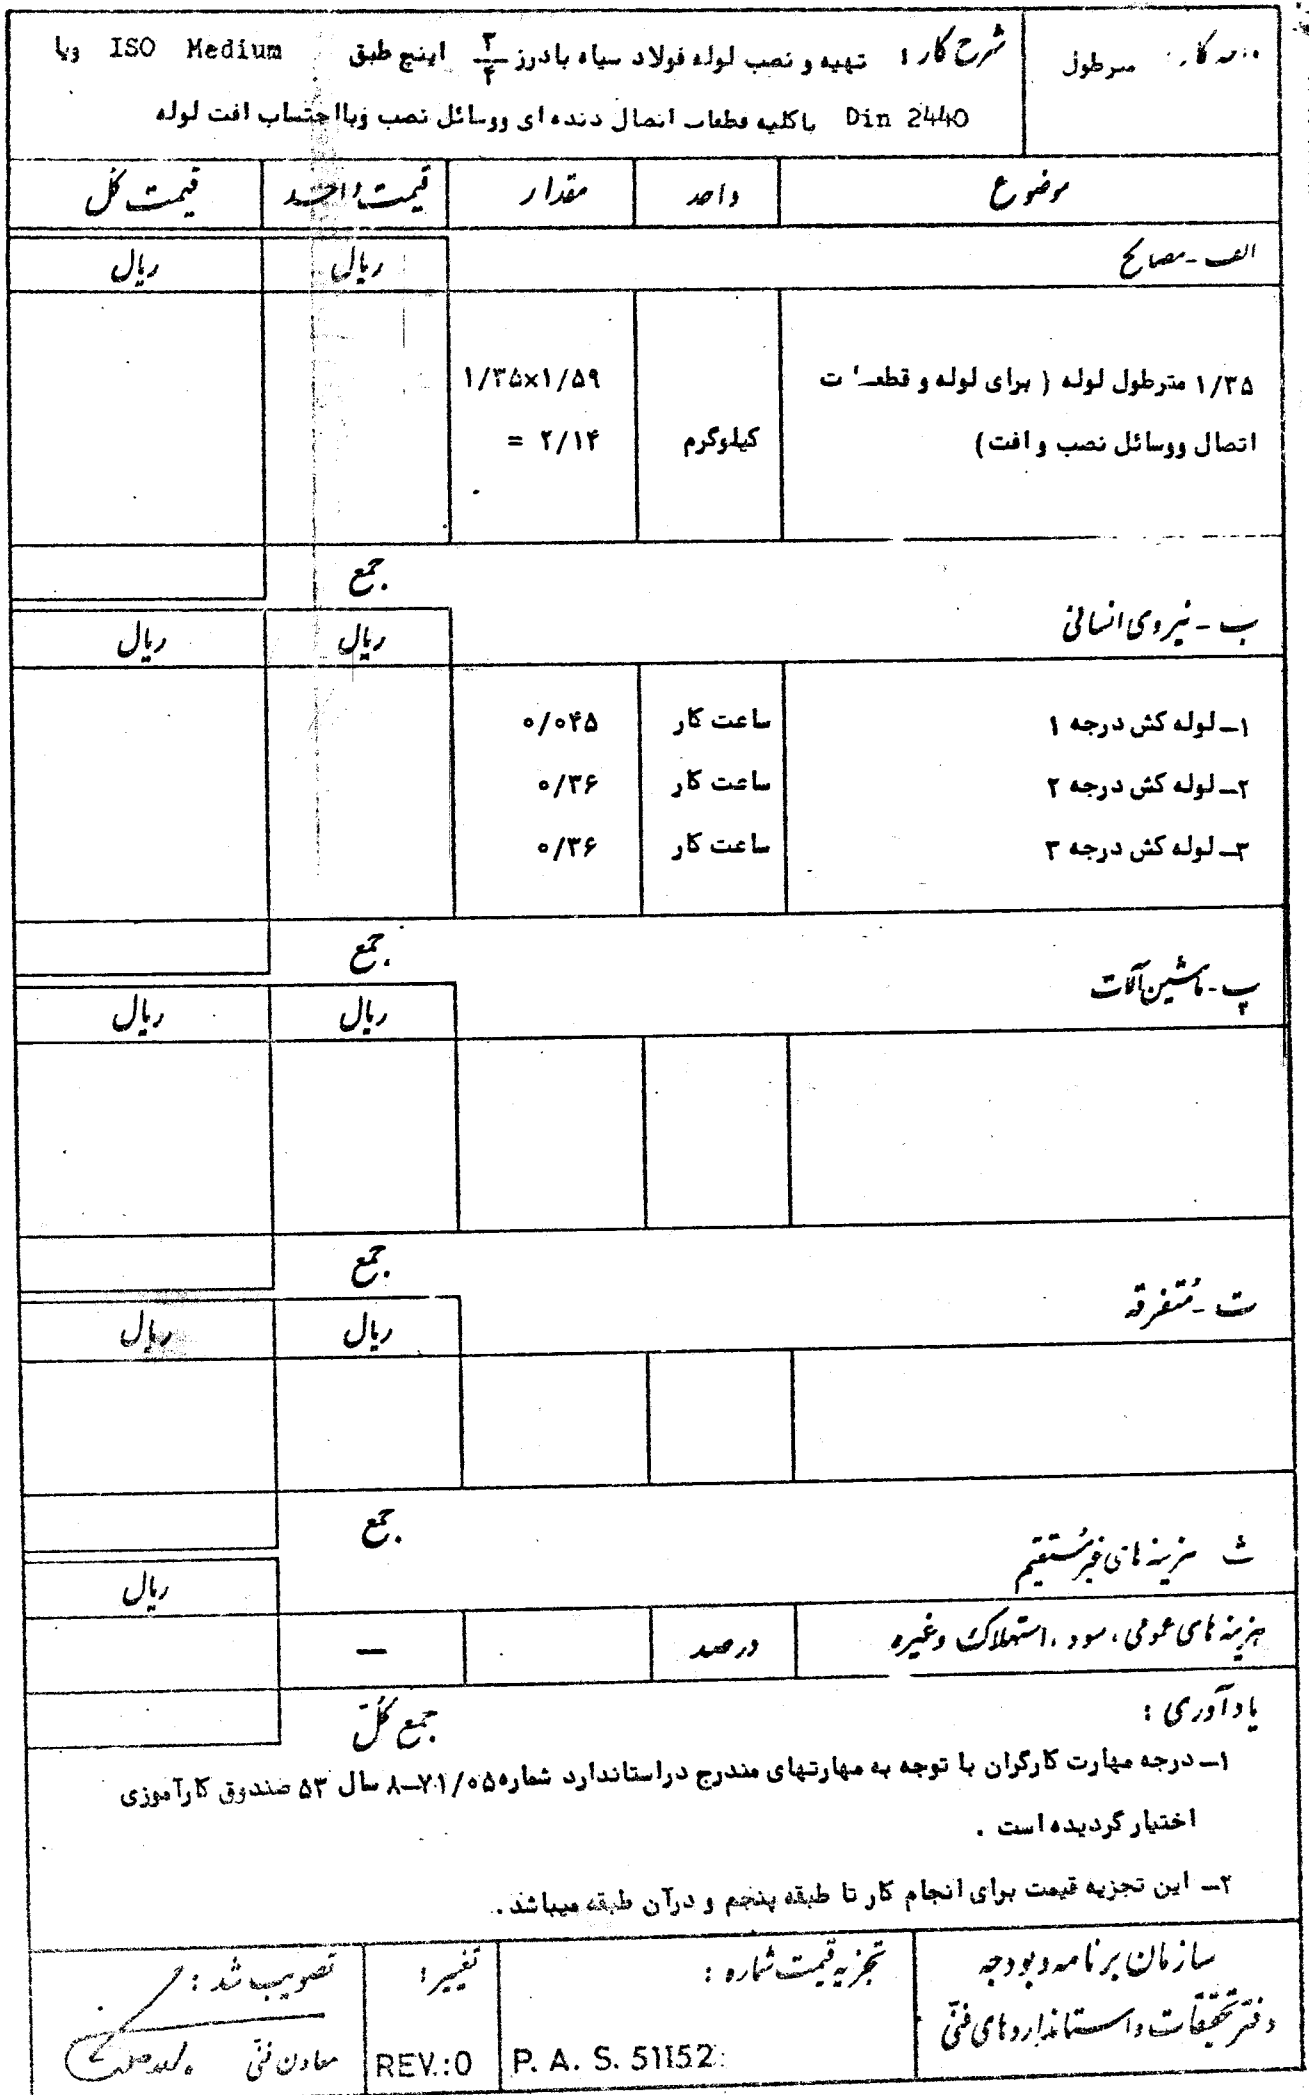 واحد کار: مترطول
شرح کار: تهیه و نصب لوله فولاد سیاه بادرز ۳/۴ اینچ طبق ISO Medium ویا
Din 2440 باکلیه قطعات اتصال دنده ای ووسائل نصب وبااحتساب افت لوله
موضوع واحد مقدار قیمت واحد قیمت کل
الف - مصالح ریال ریال
۱/۳۵ مترطول لوله ( برای لوله و قطعات ۱/۳۵×۱/۵۹
اتصال ووسائل نصب و افت) کیلوگرم = ۲/۱۴
جمع
ب - نیروی انسانی ریال ریال
۱ـ لوله کش درجه ۱ ساعت کار ۰/۰۴۵
۲ـ لوله کش درجه ۲ ساعت کار ۰/۳۶
۳ـ لوله کش درجه ۳ ساعت کار ۰/۳۶
جمع
پ - ماشین آلات ریال ریال
جمع
ت - متفرقه ریال ریال
جمع
ث هزینه های غیرمستقیم ریال
هزینه های عمومی ، سود ، استهلاک وغیره درصد —
جمع کل
یادآوری :
۱ـ درجه مهارت کارگران با توجه به مهارتهای مندرج دراستاندارد شماره ۷۱/۰۵ـ۸ سال ۵۳ صندوق کارآموزی
اختیار گردیده است .
۲ـ این تجزیه قیمت برای انجام کار تا طبقه پنجم و درآن طبقه میباشد .
سازمان برنامه وبودجه
دفتر تحقیقات واستانداردهای فنی
تجزیه قیمت شماره :
P. A. S. 51152
تغییر :
REV.:0
تصویب شد :
معاون فنی